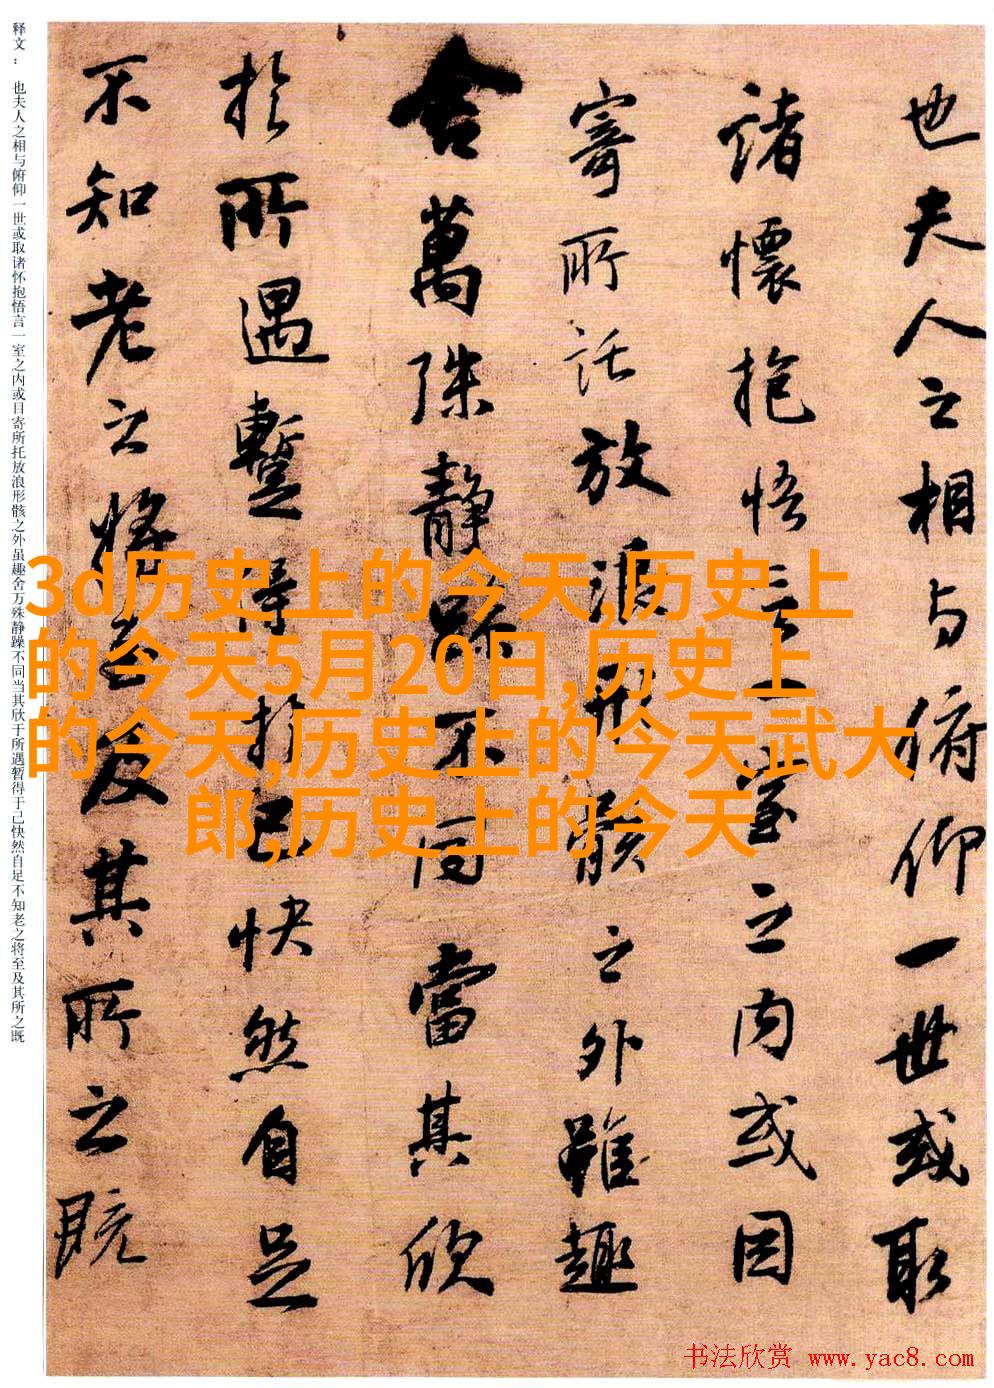 也夫人之相与俯仰一世或取
諸懷抱悟言一室之内或因
寄所託放浪形骸之外雖趣
舍萬殊静躁不同當其欣
於所遇暫得於己快然自足
不知老之将至及其所之既
释文： 也夫人之相与俯仰一世或取诸怀抱悟言一室之内或目寄所托放浪形骸之外虽趣舍万殊静躁不同当其欣于所遇暂得于己快然自足不知老之将至及其所之既
3d历史上的今天,历史上
的今天5月20日,历史上
的今天,历史上的今天武大
郎,历史上的今天
书法欣赏 www.yac8.com